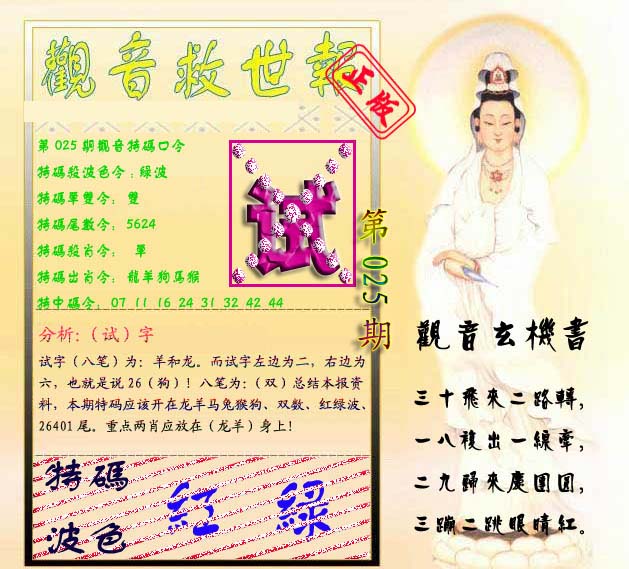 觀音救世報
正版
第025期觀音特碼口令
特碼殺波色令:綠波
特碼單雙令: 雙
特碼尾數令: 5624
特碼殺肖令: 單
特碼出肖令: 龍羊狗馬猴
特中碼令: 07 11 16 24 31 32 42 44
试
第025期
分析:(试)字
试字(八笔)为:羊和龙。而试字左边为二,右边为
六,也就是说26(狗)!八笔为:(双)总结本报资
料,本期特码应该开在龙羊马兔猴狗、双数、红绿波、
26401尾。重点两肖应放在(龙羊)身上!
特碼
波色
紅 綠
觀音玄機書
三十飛來二路轉,
一八複出一線牽,
二九歸來慶團圓,
三蹦二跳眼睛紅。